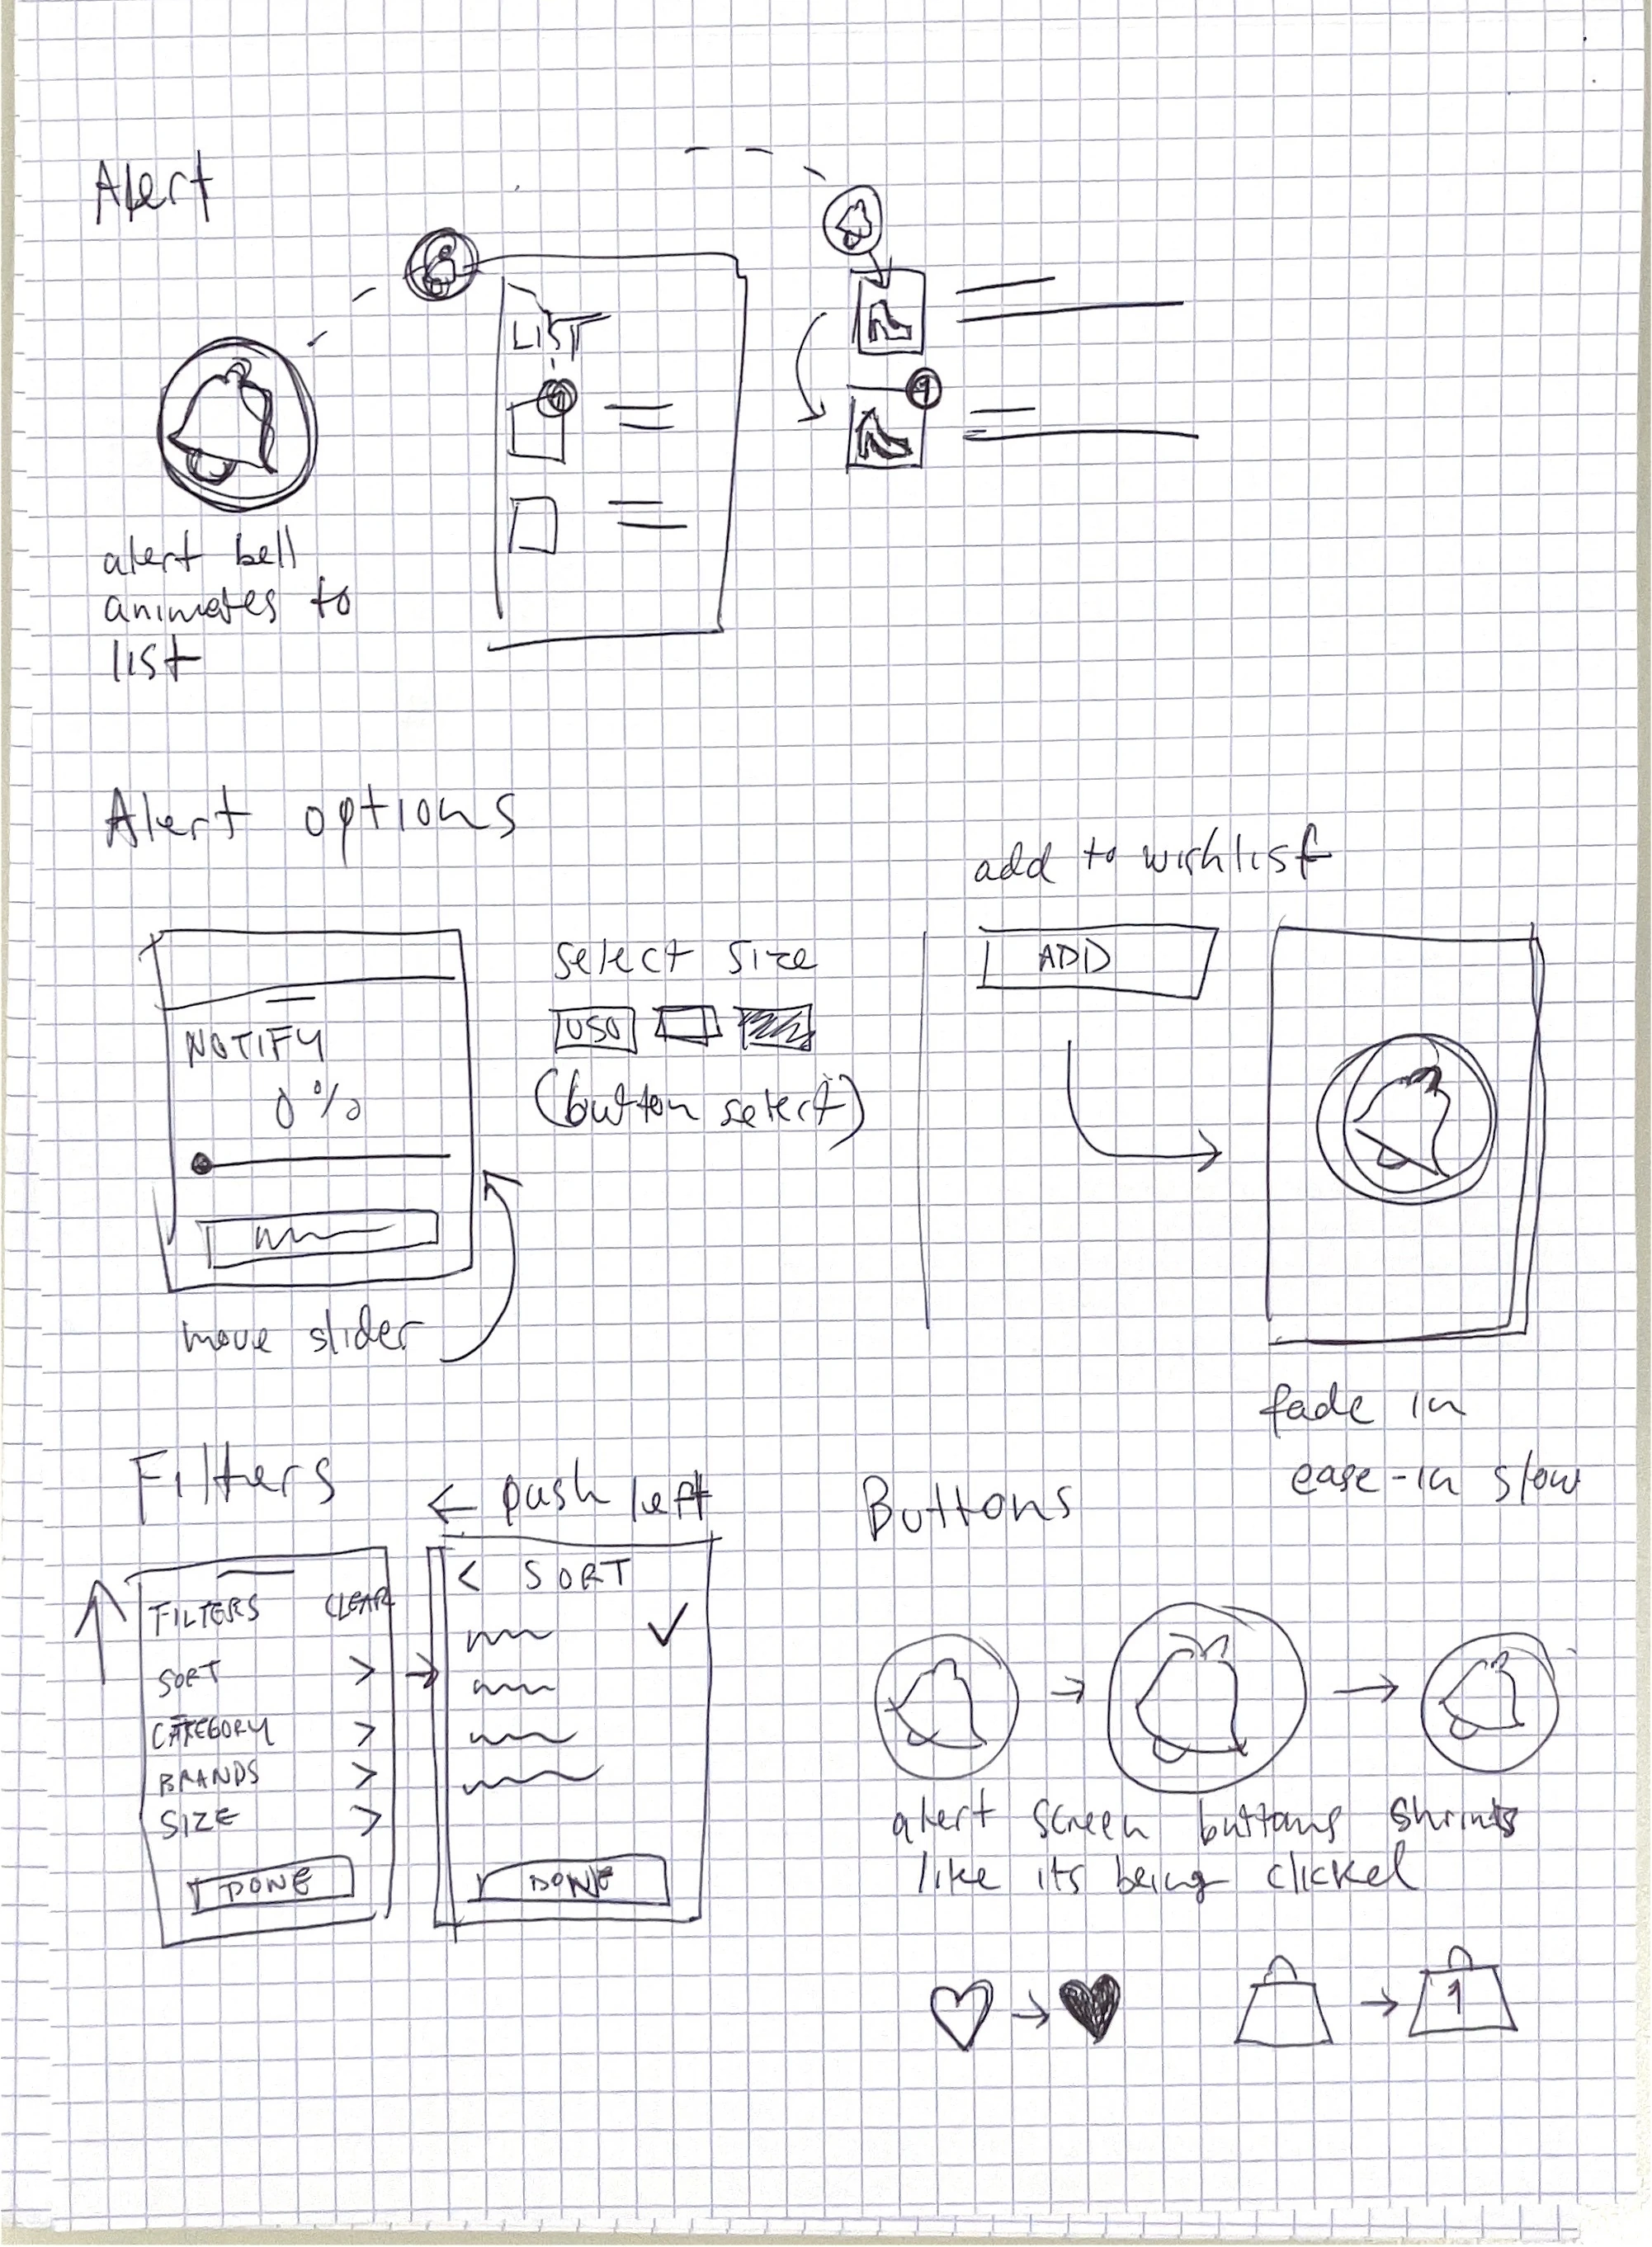 Alert
LIST
1
alert bell
animates to
list
Alert options
NOTIFY
0%
move slider
select size
(button select)
add to wishlist
ADD
fade in
ease-in slow
Filters
← push left
FILTERS CLEAR
SORT >
CATEGORY >
BRANDS >
SIZE >
DONE
< SORT
✓
DONE
Buttons
alert screen buttons shrinks
like its being clicked
1